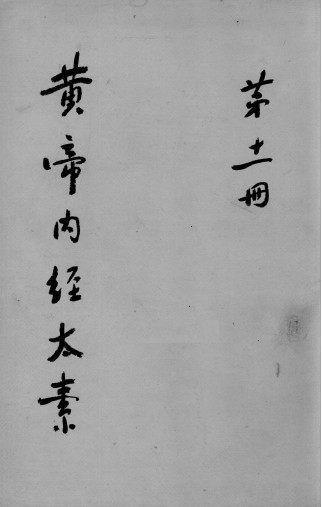 第十一冊
黄啼内经太素